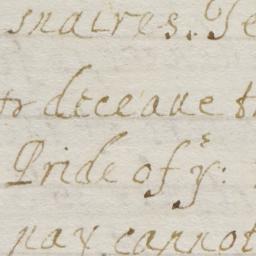 snaires. Te
tr deceaue th
Pride of yͤ:
nay cannot